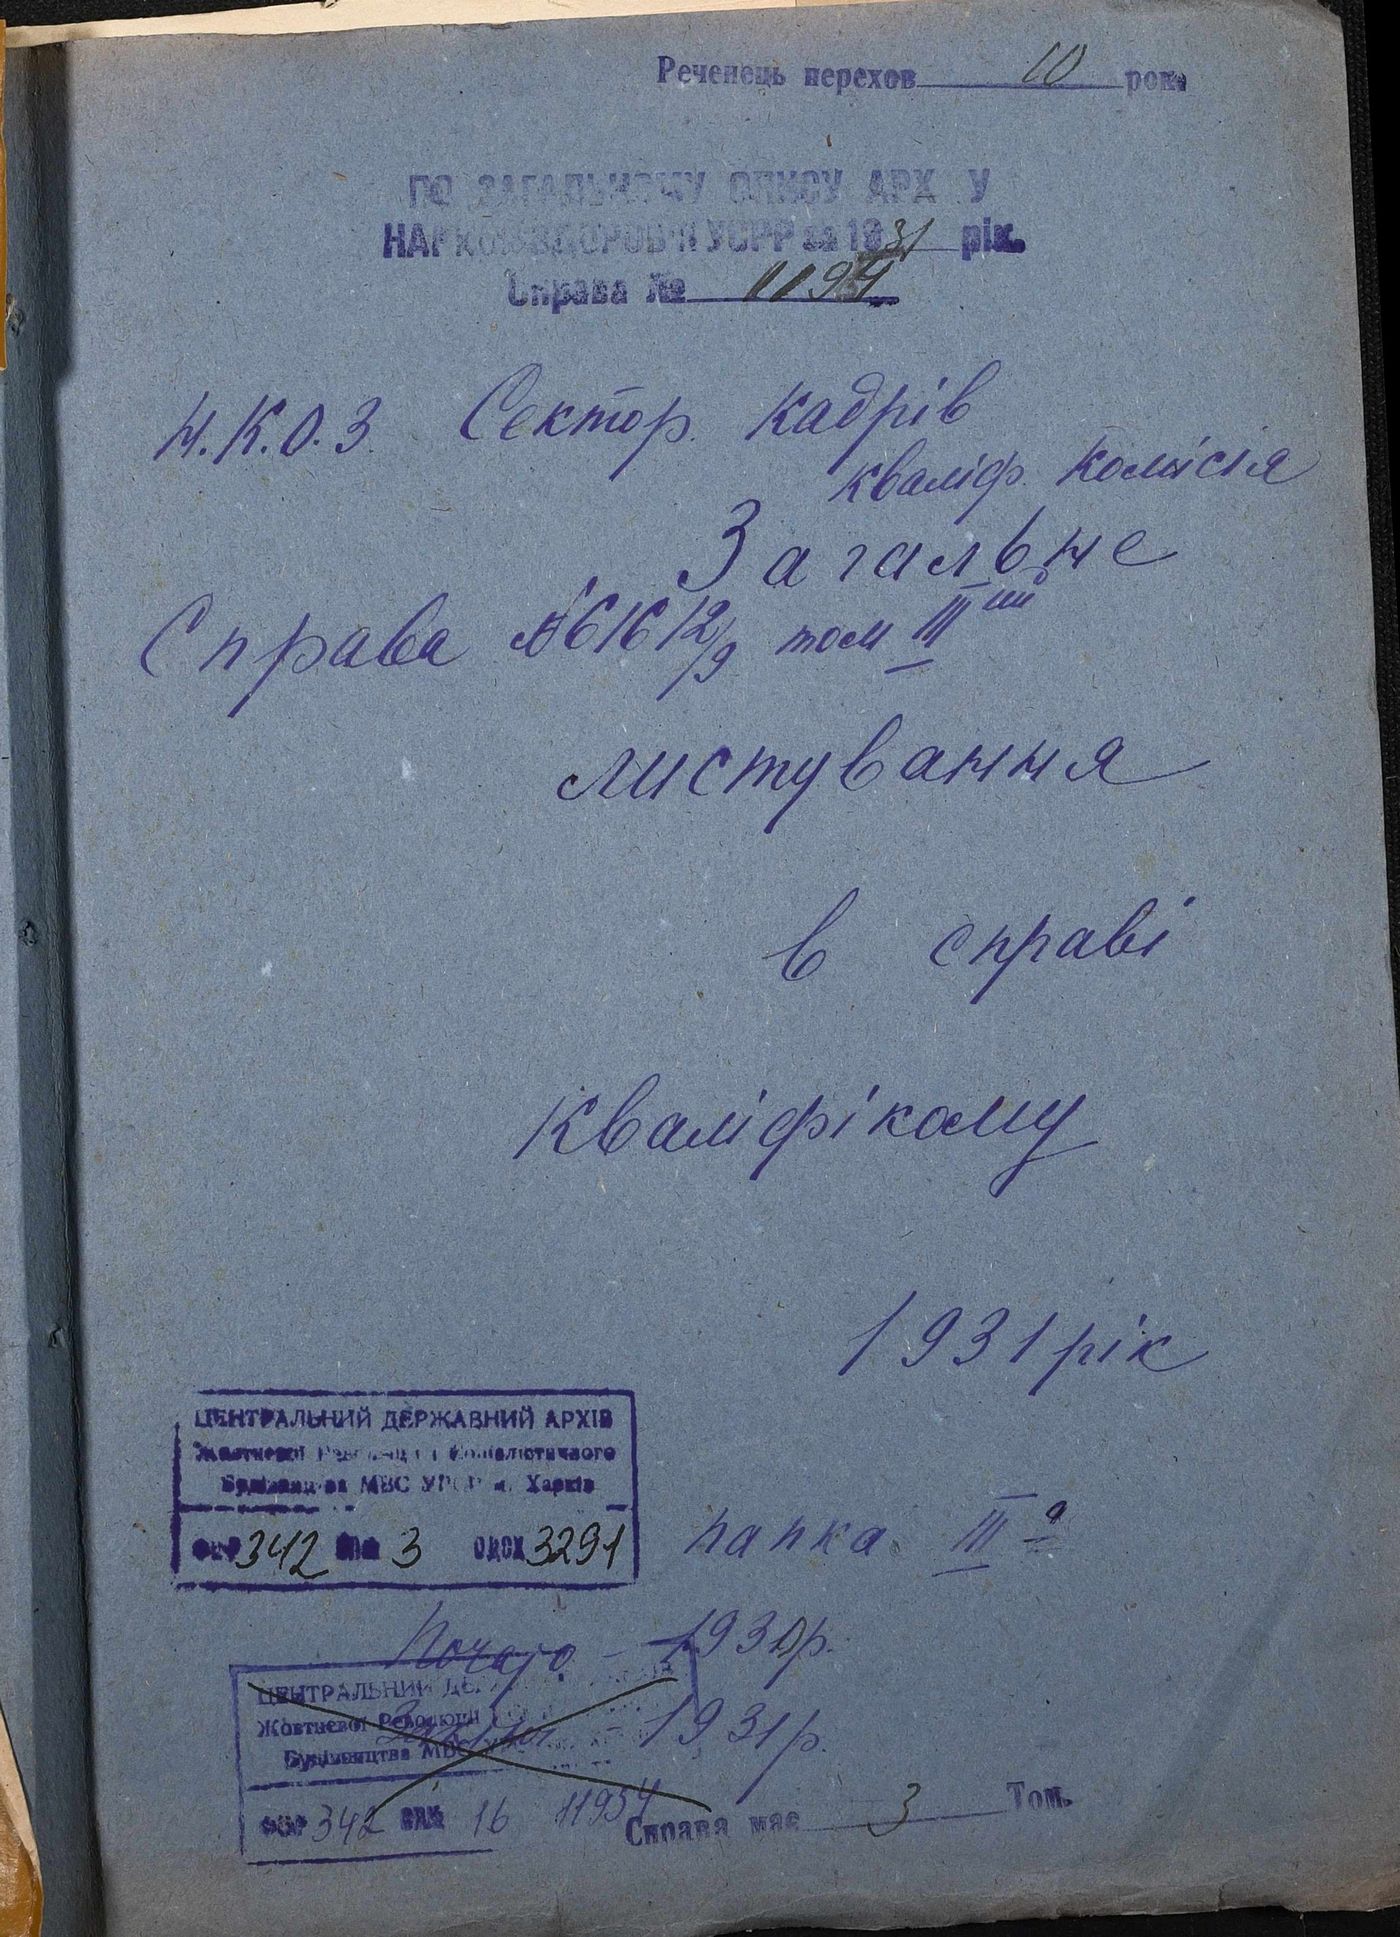 Реченець перехов 10 рок.
ПО ЗАГАЛЬНОМУ ОПИСУ АРХ У
НАРКОМЗДОРОВ'Я УСРР за 1931 рік.
Справа №
Н.К.О.З. Сектор. Кадрів
кваліф. Комісія
Загальне
Справа № 616 12/9 том III ий
листування
в справі
Кваліфікому
1931 рік
ЦЕНТРАЛЬНИЙ ДЕРЖАВНИЙ АРХІВ
Жовтневої Революції і Соціалістичного
Будівництва МВС УРСР м. Харків
ФОНД 342 ОПИС 3 ОДСХ 3291
папка III а
Почато - 1930 р.
ЦЕНТРАЛЬНИЙ ДЕ
Жовтневої Революції
- 1931 р.
Будівництва МВС
ФОНД 342 ОПИС 16 11954
Справа має 3 Том.